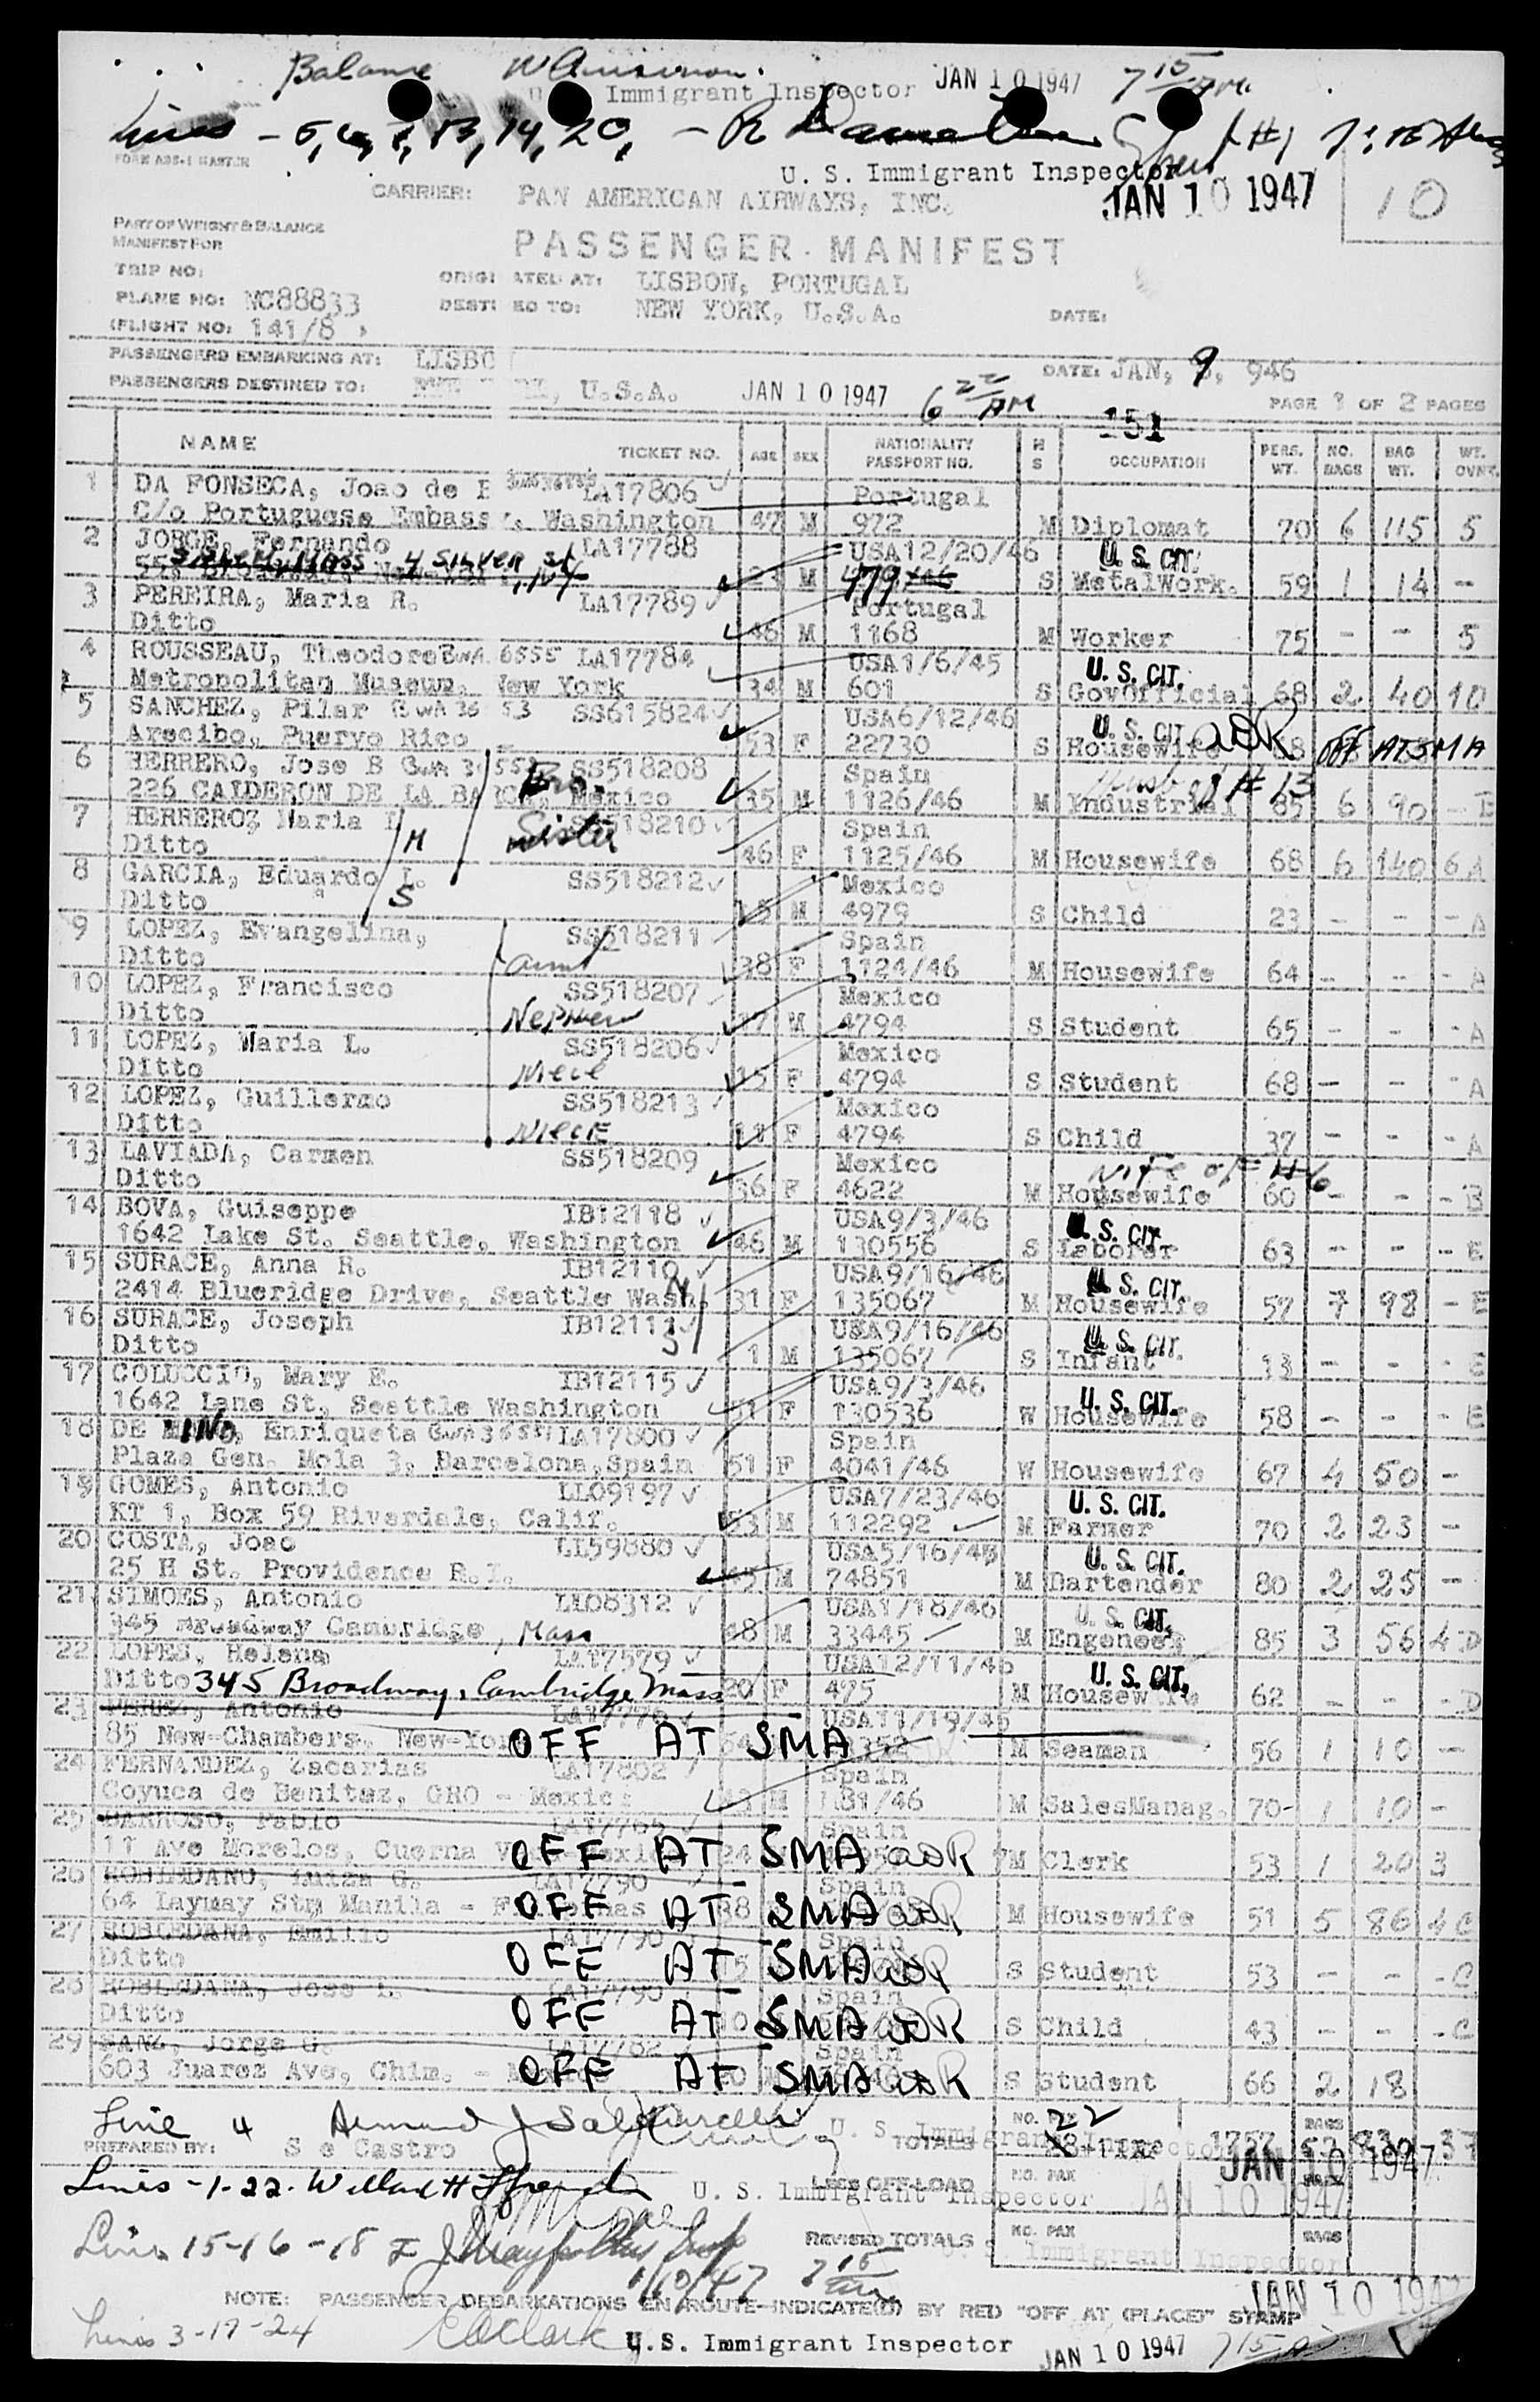 Balance
U. S. Immigrant Inspector JAN 10 1947 7 15 AM.
Lines - 5, 6, 7, 13, 14, 20, - R
U. S. Immigrant Inspector
JAN 10 1947
10
FORM ADS-1 MASTER
CARRIER: PAN AMERICAN AIRWAYS, INC.
PART OF WEIGHT & BALANCE
MANIFEST FOR
PASSENGER MANIFEST
TRIP NO: ORIGI ATED AT: LISBON, PORTUGAL
PLANE NO: NC88833 DESTI ED TO: NEW YORK, U.S.A. DATE:
(FLIGHT NO: 141/8
PASSENGERS EMBARKING AT: LISBO DATE: JAN, 9, 946
PASSENGERS DESTINED TO: U.S.A. JAN 10 1947 6 22 AM PAGE 1 OF 2 PAGES
151
NAME TICKET NO. AGE SEX NATIONALITY PASSPORT NO. M S OCCUPATION PERS. WT. NO. BAGS BAG WT. WT. OVNT.
1 DA FONSECA, Joao de B LA17806 Portugal
C/o Portuguese Embassy, Washington 47 M 972 M Diplomat 70 6 115 5
2 JORGE, Fernando LA17788 USA12/20/46 U. S. CIT.
4 SILVER St 23 M 479 S MetalWork. 59 1 14 -
3 PEREIRA, Maria R. LA17789 Portugal
Ditto 46 M 1168 M Worker 75 - - 5
4 ROUSSEAU, Theodore LA17784 USA1/6/45 U. S. CIT.
Metropolitan Museum, New York 34 M 601 S GovOfficial 68 2 40 10
5 SANCHEZ, Pilar SS615824 USA6/12/46 U. S. CIT.
Arecibo, Puervo Rico 53 F 22730 S Housewife OFF AT SMA
6 HERRERO, Jose B SS518208 Spain Husb of # 13
226 CALDERON DE LA BARCA, Mexico 35 M 1126/46 M Industrial 85 6 90 - B
7 HERREROZ Maria M Sister SS518210 Spain
Ditto 46 F 1125/46 M Housewife 68 6 140 6 A
8 GARCIA, Eduardo L. S SS518212 Mexico
Ditto 15 M 4979 S Child 23 - - - A
9 LOPEZ, Evangelina, SS518211 Spain
Ditto aunt 38 F 1124/46 M Housewife 64 - - - A
10 LOPEZ, Francisco SS518207 Mexico
Ditto Nephew 17 M 4794 S Student 65 - - - A
11 LOPEZ, Maria L. SS518206 Mexico
Ditto Niece 15 F 4794 S Student 68 - - - A
12 LOPEZ, Guillermo SS518213 Mexico
Ditto NIECE 11 F 4794 S Child 37 - - - A
13 LAVIADA, Carmen SS518209 Mexico Wife of #6
Ditto 36 F 4622 M Housewife 60 - - - B
14 BOVA, Guiseppe IB12118 USA9/3/46 U. S. CIT.
1642 Lake St. Seattle, Washington 46 M 130556 S Laborer 63 - - - E
15 SURACE, Anna R. IB12110 USA9/16/46 U. S. CIT.
2414 Blueridge Drive, Seattle Wash. 31 F 135067 M Housewife 57 7 98 - E
16 SURACE, Joseph IB12111 USA9/16/46 U. S. CIT.
Ditto S 1 M 135067 S Infant 13 - - - E
17 COLUCCIO, Mary E. IB12115 USA9/3/46 U. S. CIT.
1642 Lane St. Seattle Washington 51 F 130536 W Housewife 58 - - - E
18 DE MINO, Enriqueta LA17800 Spain
Plaza Gen. Mola 3, Barcelona, Spain 51 F 4041/46 W Housewife 67 4 50 -
19 GOMES, Antonio LL09197 USA7/23/46 U. S. CIT.
KT 1, Box 59 Riverdale, Calif. 53 M 112292 M Farmer 70 2 23 -
20 COSTA, Joao LL59880 USA5/16/46 U. S. CIT.
25 H St. Providence R.I. 45 M 74851 M Bartender 80 2 25 -
21 SIMOES, Antonio LL08312 USA1/18/46 U. S. CIT.
345 Broadway Cambridge, Mass 48 M 33445 M Engeneer 85 3 56 4 D
22 LOPES, Helena LA17579 USA12/11/46 U. S. CIT.
Ditto 345 Broadway, Cambridge Mass 20 F 475 M Housewife 62 - - - D
23 Antonio USA11/19/46
85 New-Chambers, New-Yor OFF AT SMA M Seaman 56 1 10 -
24 FERNANDEZ, Zacarias LA17802 Spain
Coyuca de Benitez, GRO - Mexico 43 M 181/46 M SalesManag. 70- 1 10 -
25 BARROSO, Pablo Spain
11 Ave Morelos, Cuerna V OFF AT SMA M Clerk 53 1 20 3
26 ROBLEDANO, Luiza G. LA17790 Spain
64 Laymay Stm Manila - OFF AT SMA M Housewife 51 5 86 4 C
27 ROBLEDANA, Emilio LA17790 Spain
Ditto OFF AT SMA S Student 53 - - - C
28 ROBLEDANA, Jose L. LA17790 Spain
Ditto OFF AT SMA S Child 43 - - - C
29 SANZ, Jorge G. LA17782 Spain
603 Juarez Ave, Chim. - OFF AT SMA S Student 66 2 18
Line 4 U. S. Immigrant Inspector NO. PAX 22 BAGS
PREPARED BY: S e Castro TOTALS 1757
JAN 10 1947
Lines - 1-22. LESS OFF-LOAD NO. PAX
U. S. Immigrant Inspector JAN 10 1947
Lines 15-16-18 REVISED TOTALS NO. PAX BAGS
U. S. Immigrant Inspector
1/10/47 7 15 AM
JAN 10 1947
NOTE: PASSENGER DEBARKATIONS EN ROUTE-INDICATE(D) BY RED "OFF AT (PLACE)" STAMP
Lines 3-17-24 U.S. Immigrant Inspector JAN 10 1947 7 15 A